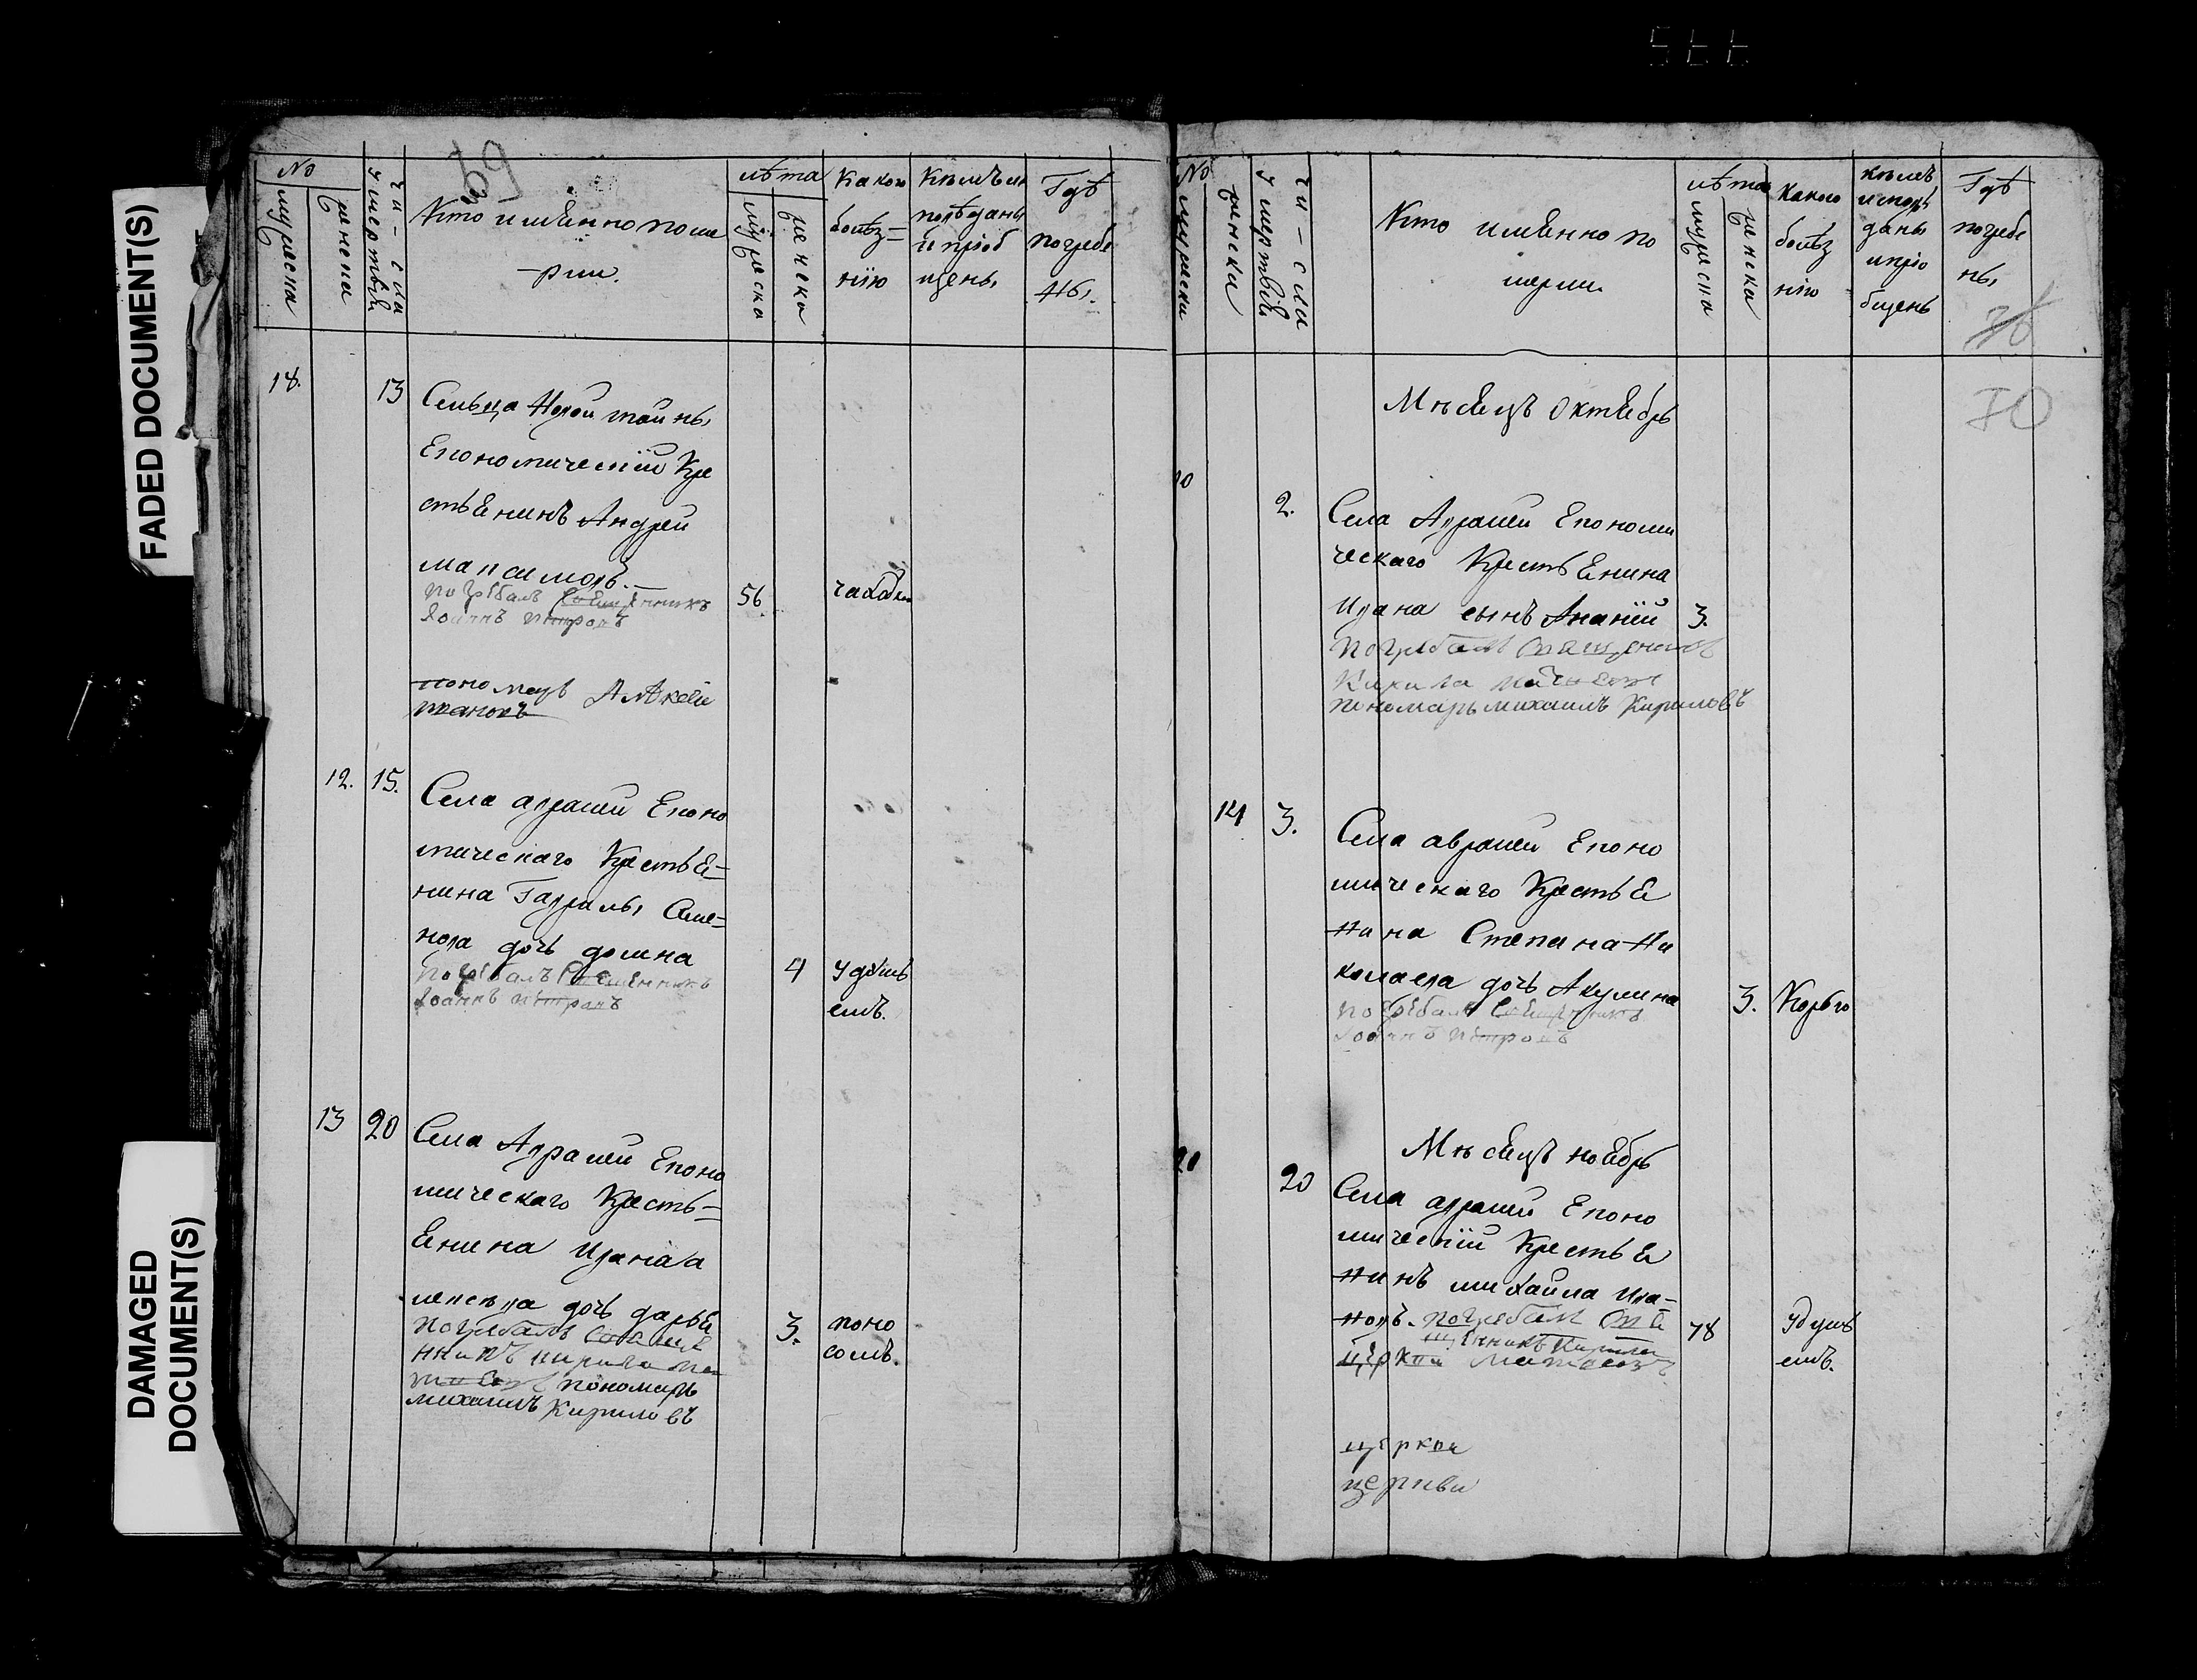 577
FADED DOCUMENT(S)
DAMAGED DOCUMENT(S)
69
№
мужеска
женска
чи-сла умертвiй
Кто имѣнно поме
-рли.
лѣта
мужеска
женска
Какою
болѣз=
нiю
Кѣмъ ис
повѣданы
и прiоб
щены
Гдѣ
погребе
ны.
18.
13
Сельца
Економическiй Кре
стьянинъ Андрей
Максимовъ.
погребалъ священникъ
Iоаннъ Петровъ
56
чахоткою
пономарь Алѣксѣй
Ивановъ
12. 15.
Села Аврамей Еконо
мическаго Крестья=
нина Гаврилы Семе=
нова дочь домна
погребалъ Священникъ
Iоаннъ Петровъ
4
Удушь
емъ.
13 20
Села Аврамей Еконо
мическаго Кресть=
янина Ивана а
лексѣва дочь дарья
погребалъ свяще
нникъ кирила ма
пономарь
михаилъ Кириловъ
3.
поно
сомъ.
№
мужеска
женска
чи-сла умертвiй
Кто имѣнно по
мерли.
лѣта
мужеска
женска
Какою
болѣз
нiю
Кѣмъ
исповѣ
даны
и прiо
бщены
Гдѣ
погребе
ны,
70
70
Мѣсяцъ Октябрь
2.
Села Аврамей Економи
ческаго Крестьянина
Ивана сынъ Ананiй
3.
погребалъ Священникъ
Кирила
пономарь михаилъ Кириловъ
14 3.
Села аврамей Еконо
мическаго Крестья
нина Степана Ни
колаева дочь Акулина
погребалъ Священникъ
Iоаннъ Петровъ
3.
Корью
Мѣсяцъ ноябрь
20
Села аврамей Еконо
мическiй Крестья
нинъ михаила Ива=
новъ. погребалъ Свя
щенникъ Кирила
церкви
78
Удушь
емъ.
церкви
церкви